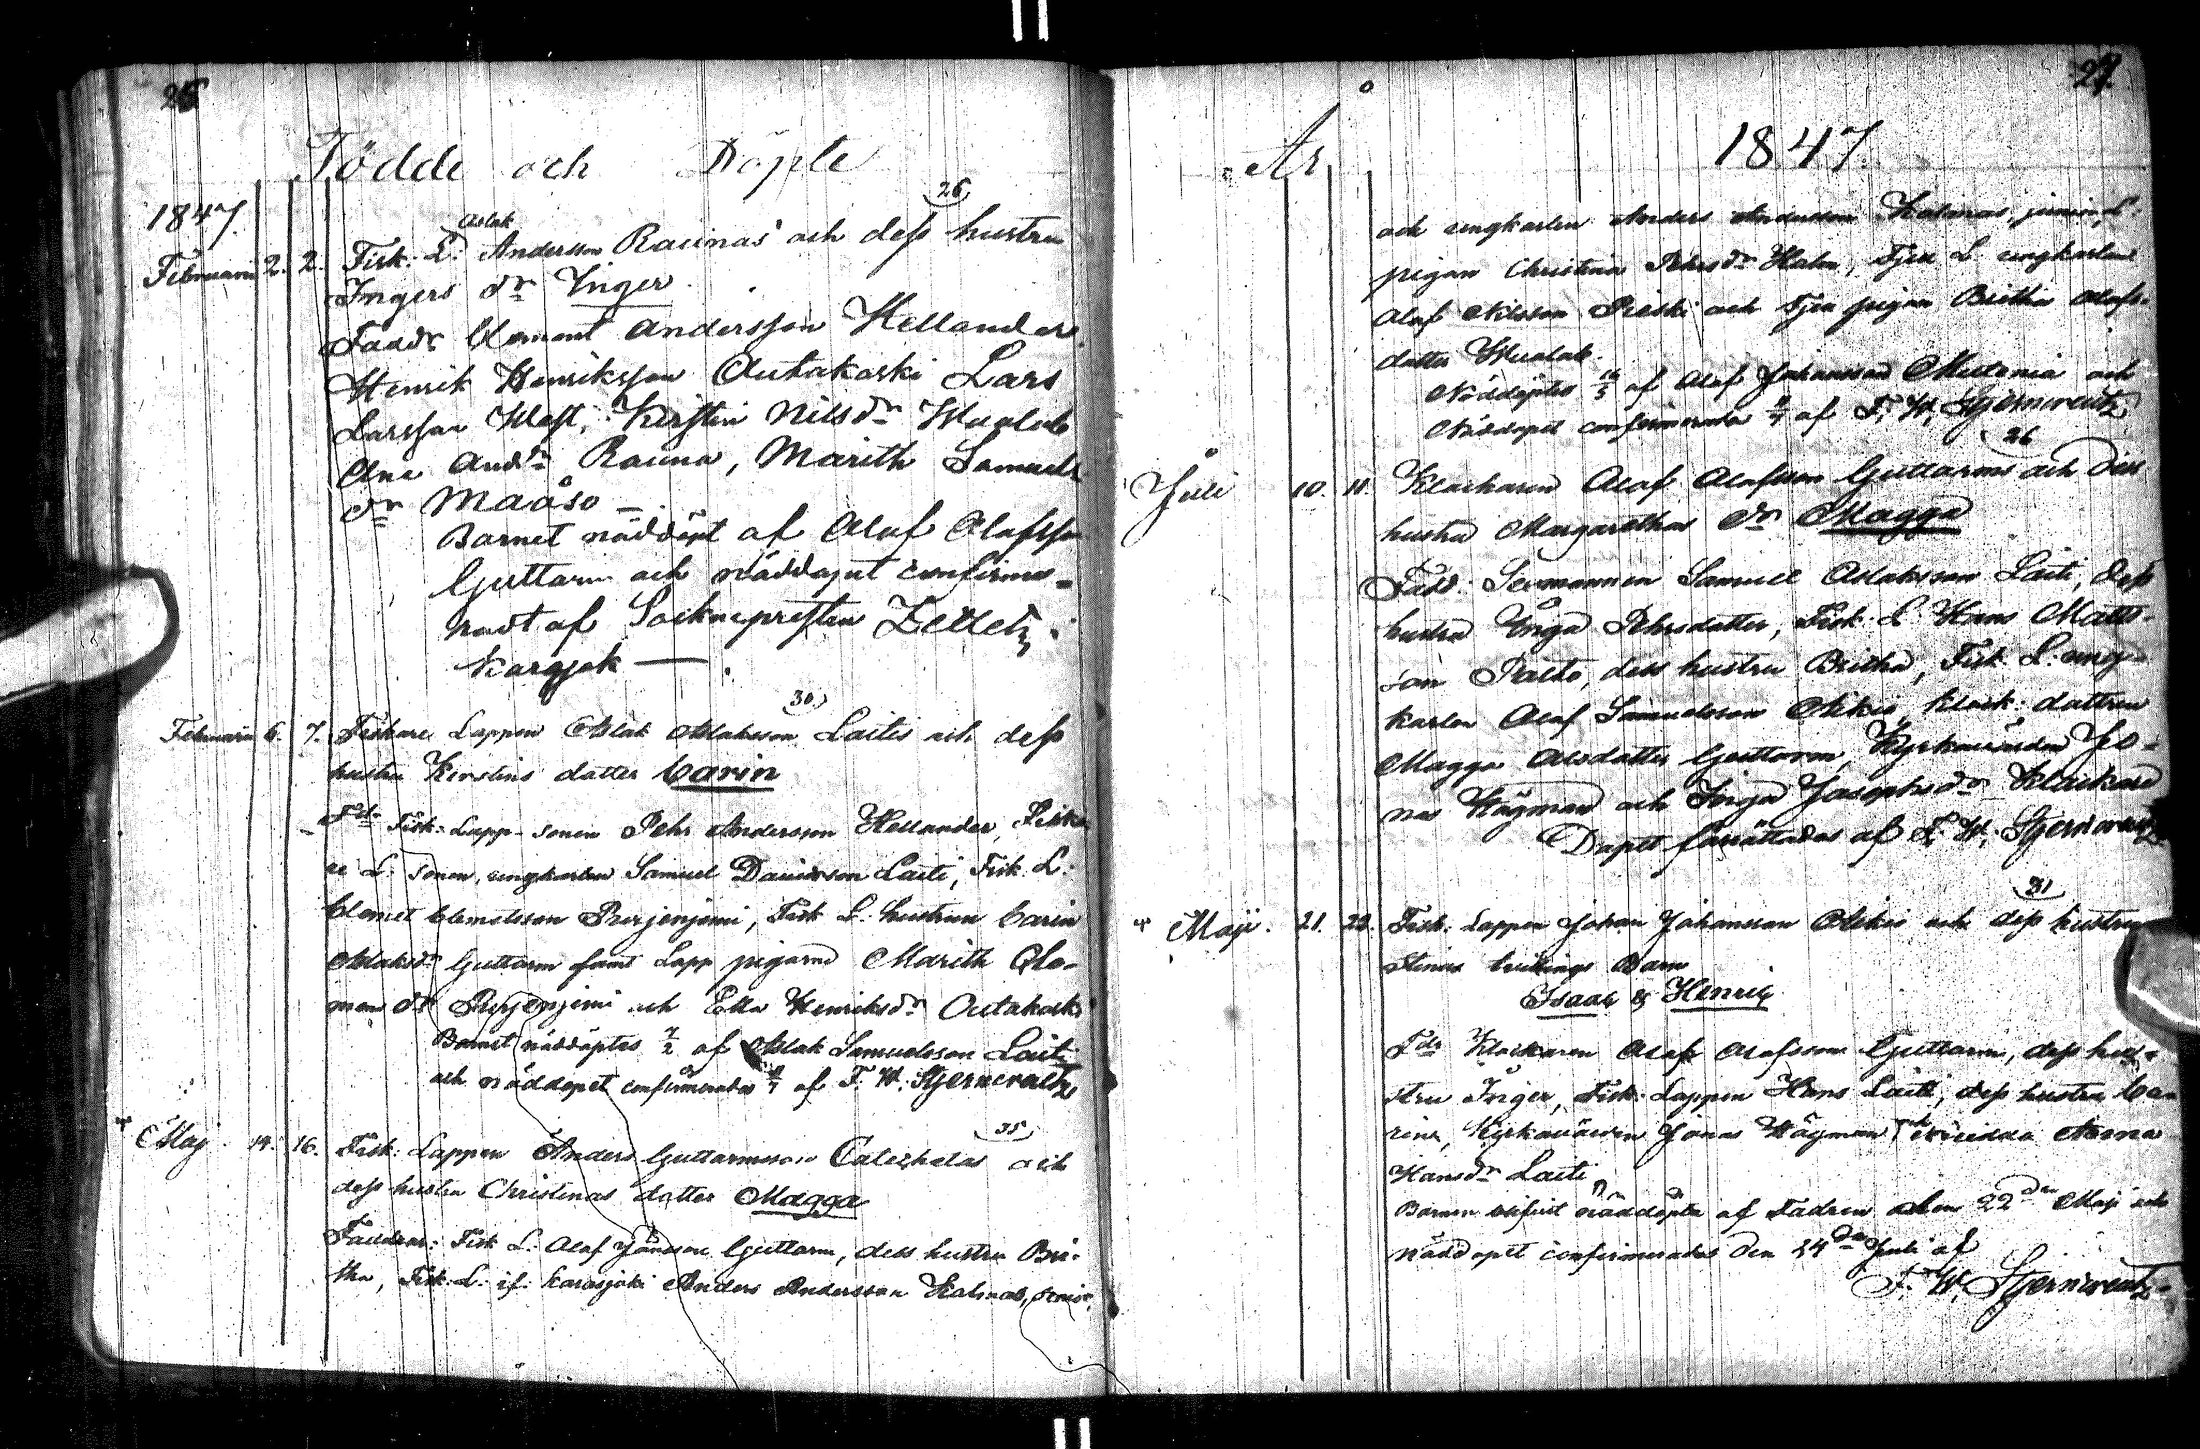 26
Födde och Döpte
1847.
26
Februarii 2. 2. Fisk. L. Aslak Andersson Raunas och dess hustru
Ingers dr Inger
Fadd. Clemant Andersson Hellander
Henrik Henriksson Outakoski Lars
Larsson West, Kirstin Nilsdr Wualab
Ana Anddr Rauna, Marith Samuels
dr Maaso
Barnet nöddöpt af Olaf Olafsson
Guttorm och nöddopet confirme-
radt af Socknepresten Zetletz i
Karasjok
30
Februarii 6. 7. Fiskare Lappen Aslak Aslaksson Laitis och dess
hustru Kerstins dotter Carin
Fdr Fisk: Lapp-sonen Pehr Andersson Hellander, Fiska
re L: sonen, ungkarlen Samuel Davidsson Laiti, Fisk. L:
Clemet Clemetsson Puerjenjemi, Fisk L. hustrun Carin
Aslaksdr Guttorm samt Lapp pigorna Marith Olo-
mons dr Puerjenjemi och Ella Henriksdr Outakoski
Barnet nöddöptes 7/2 af Aslak Samuelsson Laiti
och nöddopet confirmerades af F. W. Stjerncreutz
35
Maj 14. 16. Fisk: Lappen Anders Guttormsson och
dess hustru Christinas dotter Magga
Faddrar: Fisk L. Olaf Jönsson Guttorm, dess hustru Bri-
tha, Fisk. L. if. Karasjoki Anders Andersson Halmas, senior,
27.
År 1847
och ungkarlen Anders Andersson Halmas, junior, L:
pigan Christina Pehrsdr Halm, Tjen L. ungkarlen
Olof Nilsson Pieski och Tjen pigan Britha Olofs-
dotter Wualab.
Nöddöptes 16/5 af Olof Johansson och
Nöddopet confirmerades af F. W. Stjerncreutz
26
Juli 10. 11. Klockaren Olof Olofsson Guttorms och dess
hustru Margarethas dr Magga
Fadd. Sexmannen Samuel Aslaksson Laiti, dess
hustru Inga Pehrsdotter, Fisk L Hans Matts-
son Palto, dess hustru Britha, Fisk. L. ung-
karlen Olof Samuelsson Akkio, Klock: dottren
Magga Olsdotter Guttorm, Kyrkovärden Jo-
nas Högman och Inga Josephsdr Klockare
Dopet förrättades af F. W. Stjerncreutz
31
Maji. 21. 22. Fisk. Lappen Johan Johansson Akkio och dess hustru
Stinas tvillings Barn
Isaac & Henric
Fdr Klockaren Olof Olofsson Guttorm, dess hus-
tru Inger, Fisk: Lappen Hans Laiti, dess hustru Ca-
rin, Kyrkovärden Jonas Högman och Anna
Hansdr Laiti
Barnen blifvit nöddöpta af Fadren den 22den Maji och
Nöddopet confirmerades den 14de Juli af
F. W. Stjerncreutz